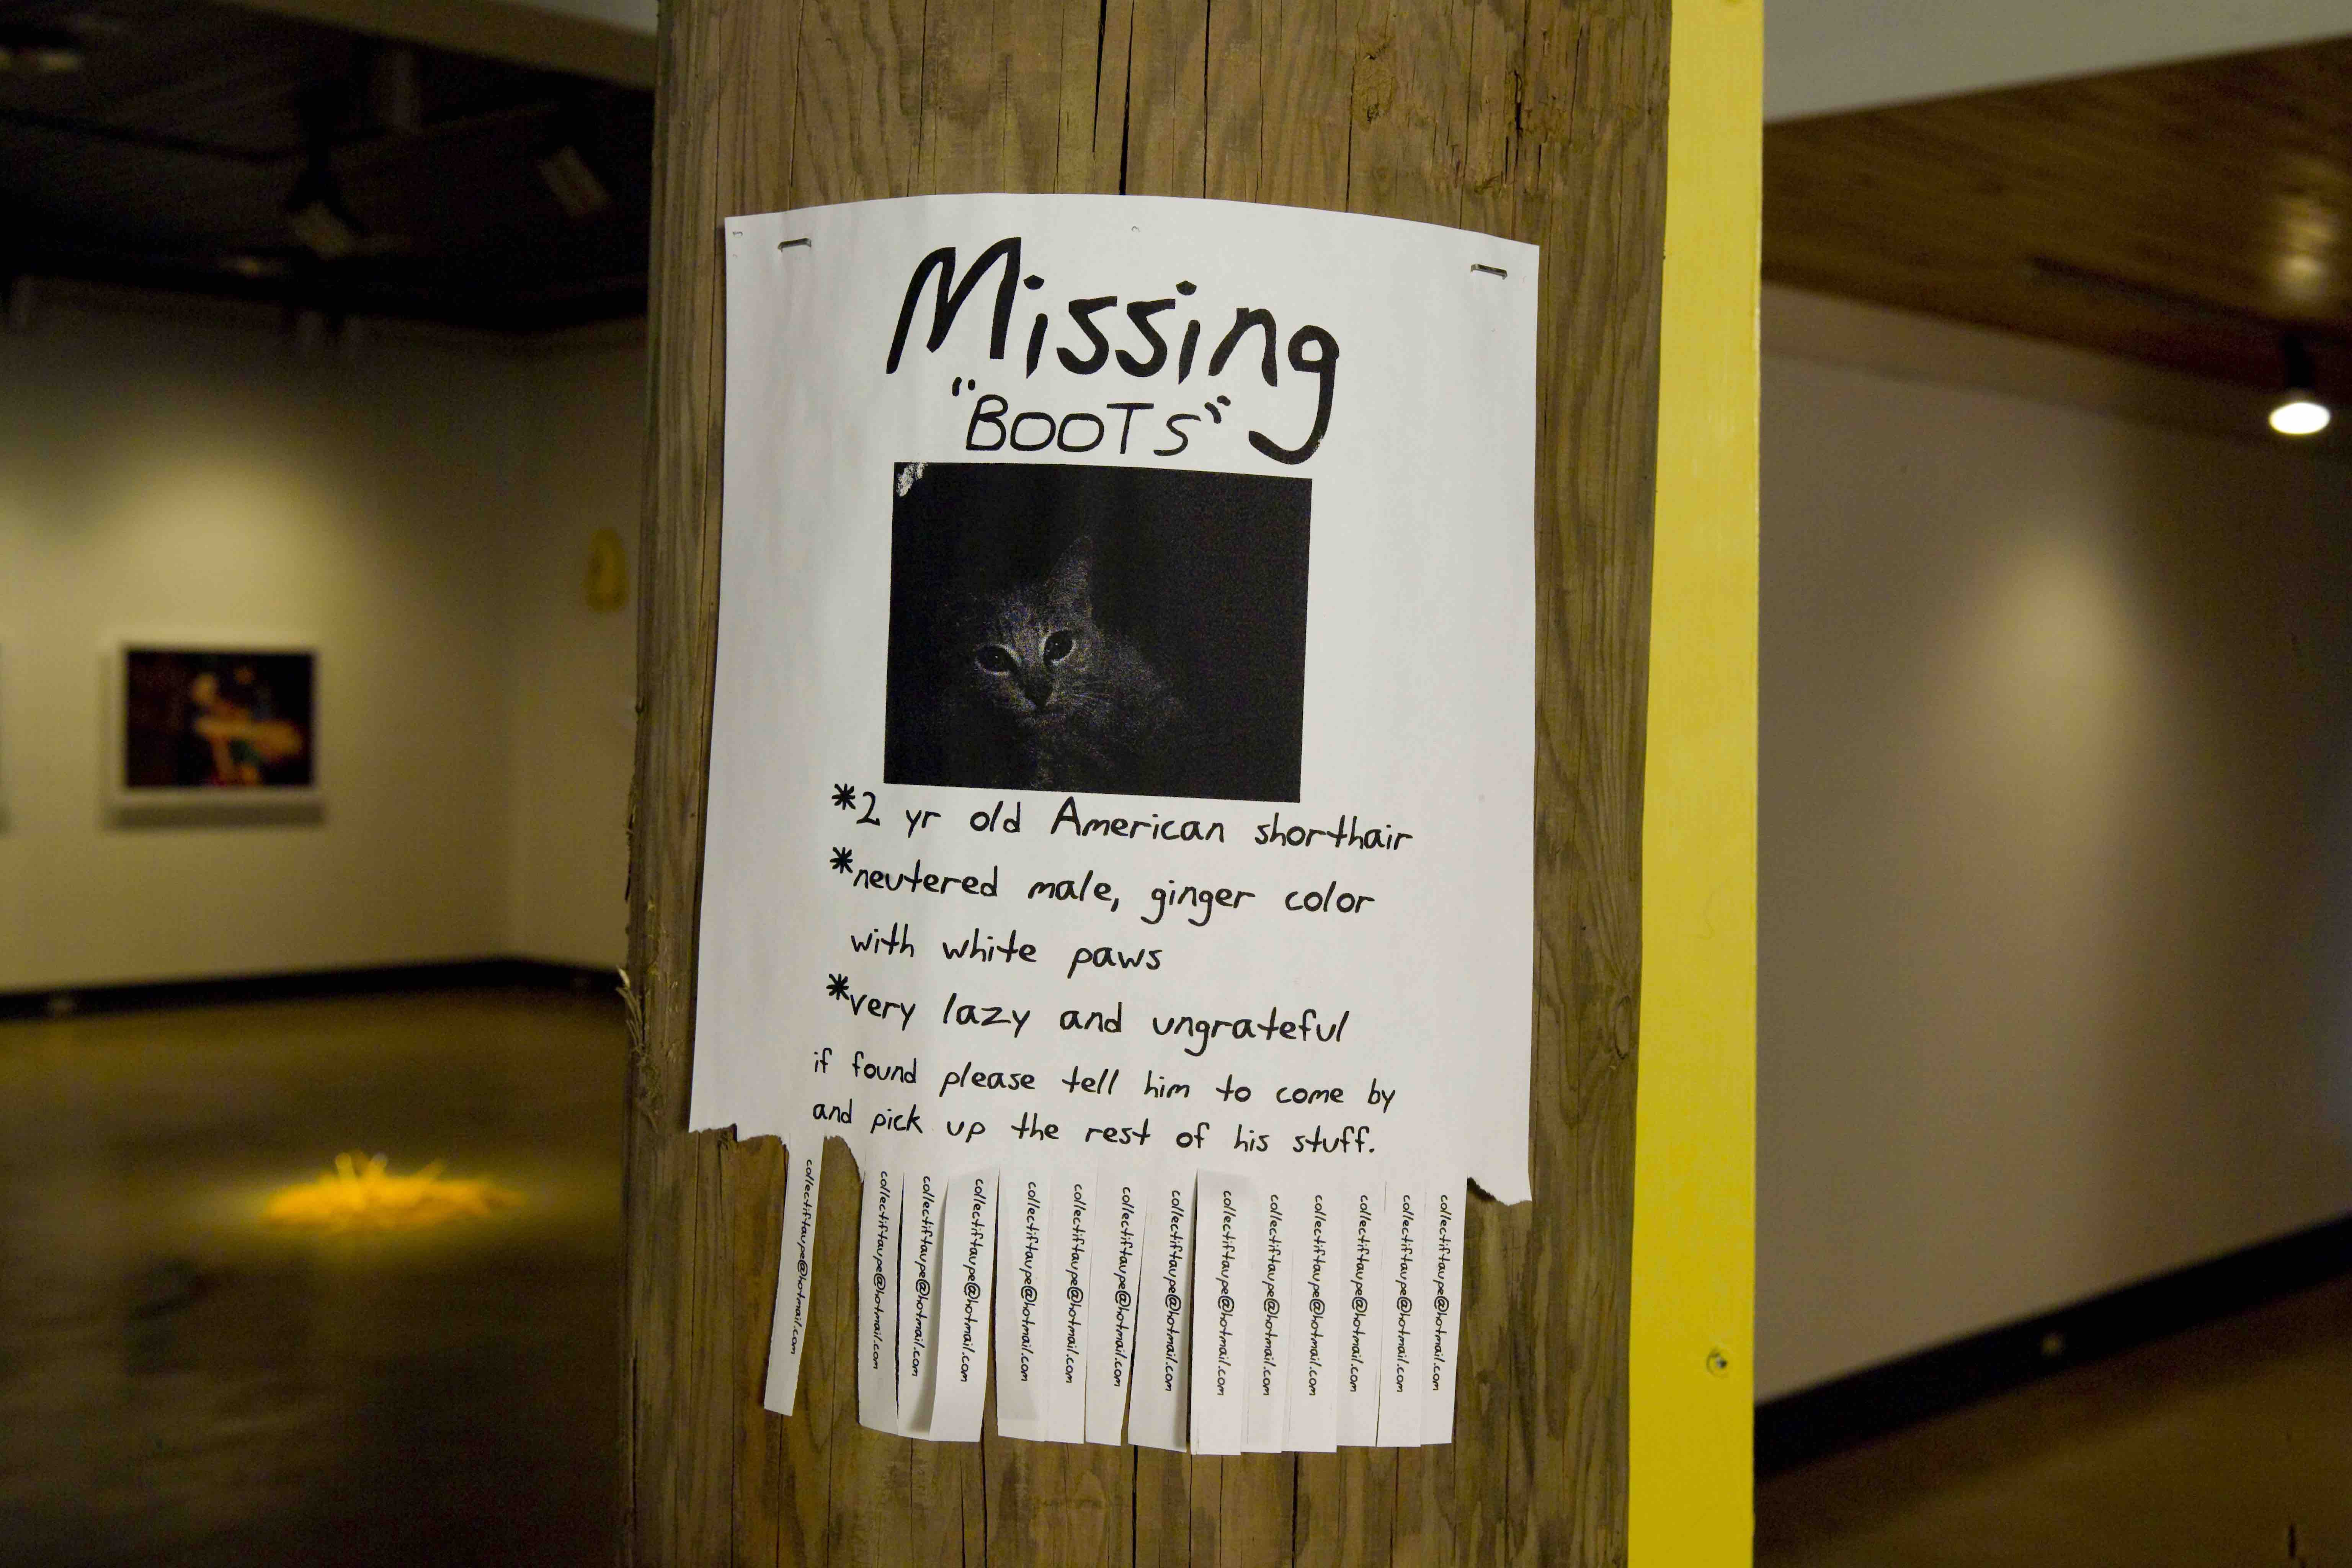 Missing
"BOOTS"
*2 yr old American shorthair
*neutered male, ginger color
with white paws
*very lazy and ungrateful
if found please tell him to come by
and pick up the rest of his stuff.
collectiftaupe@hotmail.com
collectiftaupe@hotmail.com
collectiftaupe@hotmail.com
collectiftaupe@hotmail.com
collectiftaupe@hotmail.com
collectiftaupe@hotmail.com
collectiftaupe@hotmail.com
collectiftaupe@hotmail.com
collectiftaupe@hotmail.com
collectiftaupe@hotmail.com
collectiftaupe@hotmail.com
collectiftaupe@hotmail.com
collectiftaupe@hotmail.com
collectiftaupe@hotmail.com